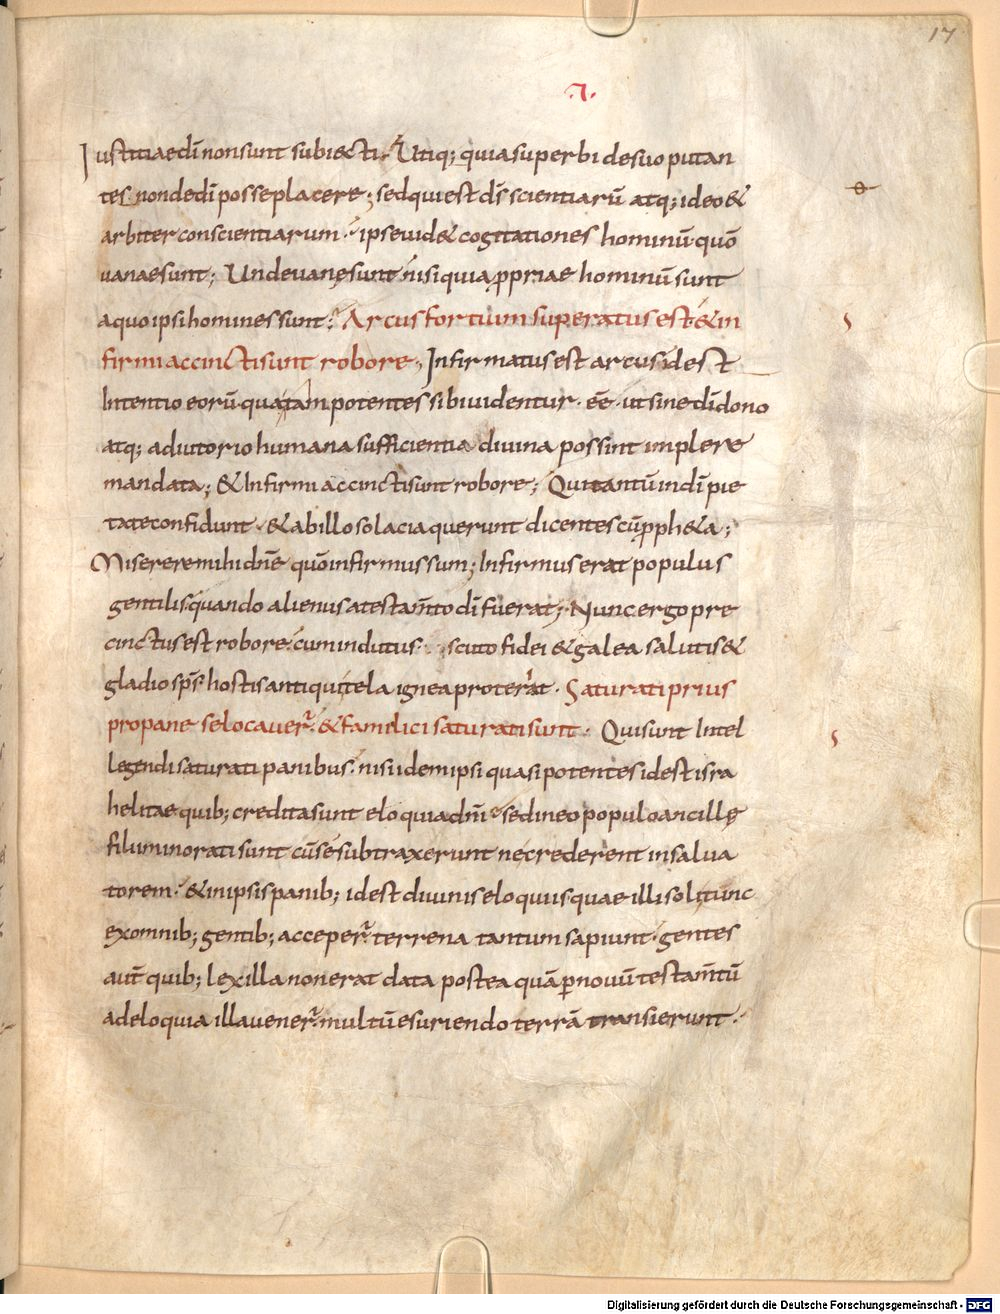 17
·⁊·
Iustitiae dī non sunt subiecti. Utiq; quia superbi de suo putan
tes non de dī posse placere; sed qui est dr̄s scientiarū atq; ideo &
arbiter conscientiarum. ipse uid& cogitationes hominū quō
uanae sunt; Unde uanę sunt nisi quia ꝓpriae hominū sunt
a quo ipsi homines sunt; Arcus fortium superatus est & in
firmi accincti sunt robore. Infirmatus est arcus id est
Intentio eorū qua tam potentes sibi uidentur. eē. ut sine dī dono
atq; adiutorio humana sufficientia diuina possint implere
mandata; & Infirmi accincti sunt robore; Qui tantū in dī pie
tate confidunt. & ab illo solacia querunt dicentes cū ꝓph&a;
Miserere mihi dn̄e quō infirmus sum; Infirmus erat populus
gentilis quando alienus a testam̄to dī fuerat; Nunc ergo pre
cinctus est robore. cum indutus scuto fidei & galea salutis &
gladio sp̄s hostis antiqui tela ignea proterat. Saturati prius
pro pane se locauer̄. & famelici saturati sunt. Qui sunt Intel
legendi saturati panibus. nisi idem ipsi quasi potentes id est isra
helitae quib; credita sunt eloquia dn̄i sed in eo populo ancillę
filii minorati sunt cū se subtraxerunt ne crederent in salua
torem. & in ipsis panib; id est diuinis eloquiis quae illi soli tunc
ex omnib; gentib; acceper̄ terrena tantum sapiunt. gentes
aut̄ quib; lex illa non erat data postea quā ꝑ nouū testam̄tū
ad eloquia illa uener̄. multū esuriendo terrā transierunt.
Digitalisierung gefördert durch die Deutsche Forschungsgemeinschaft - DFG